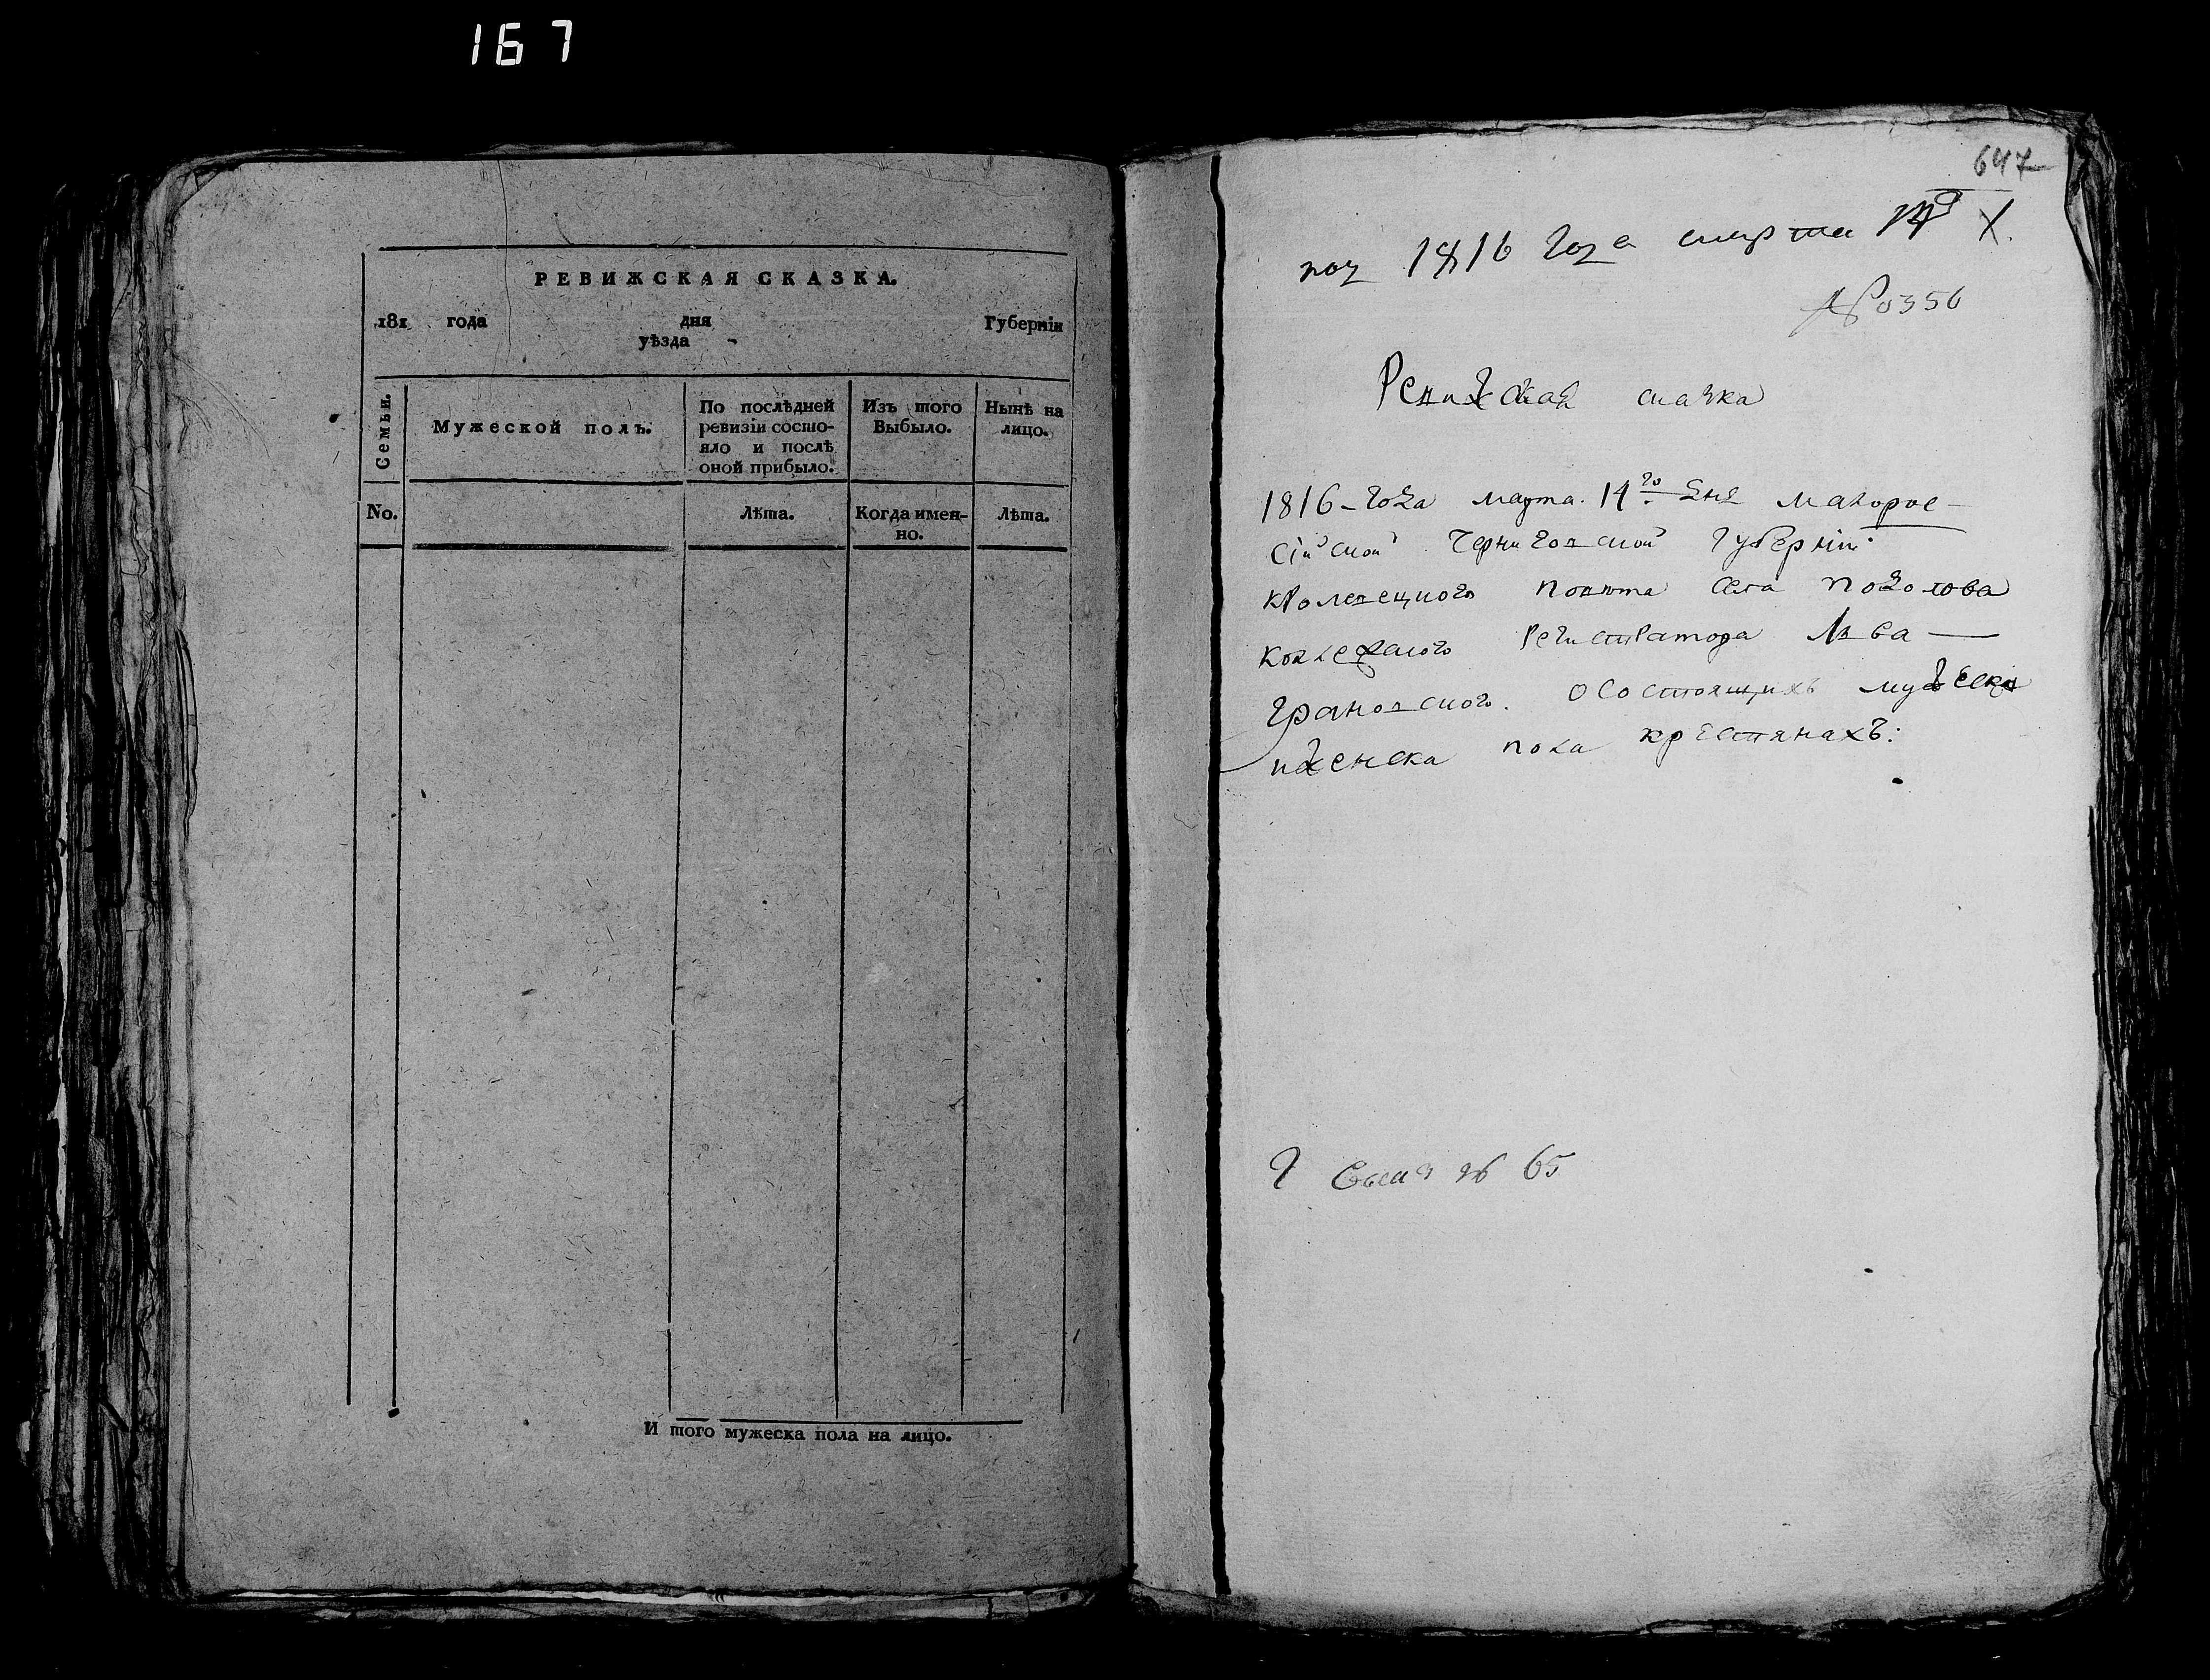 167
РЕВИЖСКАЯ СКАЗКА.
181 года дня Губерніи
уѣзда
Семьи.
Мужеской полъ.
По послѣдней ревизіи состо-
яло и послѣ
оной прибыло.
Изъ того
Выбыло.
Нынѣ на
лицо.
No.
Лѣта.
Когда имен-
но.
Лѣта.
И того мужеска пола на лицо.
647
под 1816 года марта
№ 0356
Ревижская сказка
1816-года марта 14го дня малорос-
сійской Черниговской Губерніи
кролевецкого повѣта села
колежского Регистратора Лва
Грановского. о состоящихъ мужеска
и женска пола крестянахъ:
№ 65